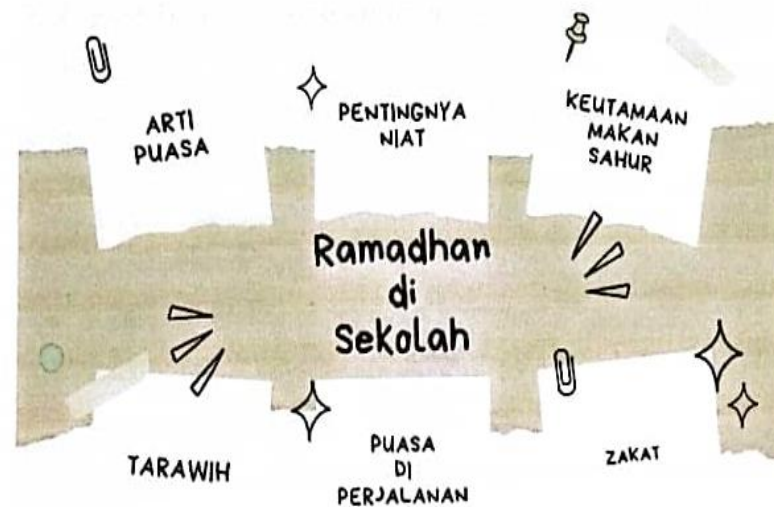 ARTI
PUASA
PENTINGNYA
NIAT
KEUTAMAAN
MAKAN
SAHUR
Ramadhan
di
Sekolah
TARAWIH
PUASA
DI
PERJALANAN
ZAKAT